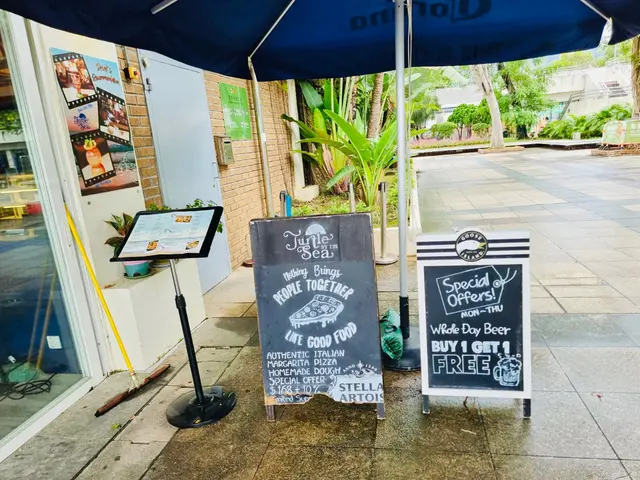 Corona
Turtle
BY THE
Sea
Nothing Brings
PEOPLE TOGETHER
LIKE GOOD FOOD
AUTHENTIC ITALIAN
MARGARITA PIZZA
HOMEMADE DOUGH
SPECIAL OFFER
$168 + 10%
STELLA
ARTOIS
GOOSE
ISLAND
Special
Offers!
MON-THU
Whole Day Beer
BUY 1 GET 1
FREE